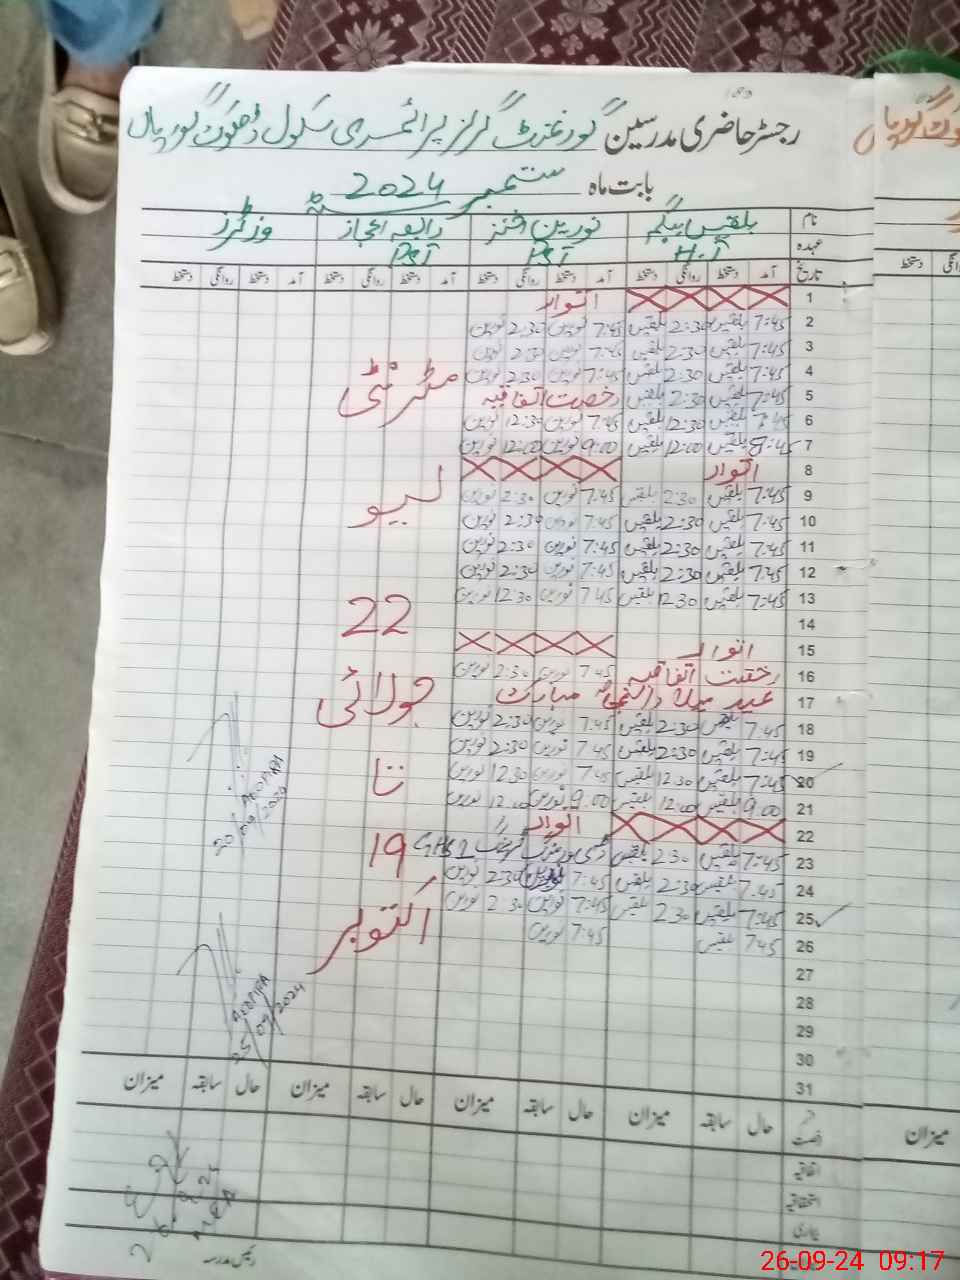 رجسٹر حاضری مدرسین گورنمنٹ گرلز پرائمری سکول ڈھکوٹ گورپاں
بابت ماہ ستمبر 2024
نام بلقیس بیگم نورین اختر رابعہ اعجاز وزٹرز
عہدہ H.T PST PST
تاریخ آمد دستخط روانگی دستخط آمد دستخط روانگی دستخط آمد دستخط روانگی دستخط آمد دستخط روانگی دستخط
1 اتوار
2 7:45 بلقیس 2:30 بلقیس 7:45 نورین 2:30 نورین
3 7:45 بلقیس 2:30 بلقیس 7:45 نورین 2:30 نورین
4 7:45 بلقیس 2:30 بلقیس 7:45 نورین 2:30 نورین
5 7:45 بلقیس 2:30 بلقیس رخصت اتفاقیہ
6 7:45 بلقیس 12:30 بلقیس 7:45 نورین 12:30 نورین
7 8:45 بلقیس 12:00 بلقیس 9:00 نورین 12:00 نورین
8 اتوار
9 7:45 بلقیس 2:30 بلقیس 7:45 نورین 2:30 نورین
10 7:45 بلقیس 2:30 بلقیس 7:45 نورین 2:30 نورین
11 7:45 بلقیس 2:30 بلقیس 7:45 نورین 2:30 نورین
12 7:45 بلقیس 2:30 بلقیس 7:45 نورین 2:30 نورین
13 7:45 بلقیس 12:30 بلقیس 7:45 نورین 12:30 نورین
14
15 اتوار
16 رخصت اتفاقیہ 7:45 نورین 2:30 نورین
17 عید میلاد النبیؐ مبارک
18 7:45 بلقیس 2:30 بلقیس 7:45 نورین 2:30 نورین
19 7:45 بلقیس 2:30 بلقیس 7:45 نورین 2:30 نورین
20 7:45 بلقیس 12:30 بلقیس 7:45 نورین 12:30 نورین
21 9:00 بلقیس 12:00 بلقیس 9:00 نورین 12:00 نورین
22 اتوار
23 7:45 بلقیس 2:30 بلقیس
24 7:45 بلقیس 2:30 بلقیس 7:45 نورین 2:30 نورین
25 7:45 بلقیس 2:30 بلقیس 7:45 نورین 2:30 نورین
26 7:45 بلقیس 7:45 نورین
27
28
29
30
31
مٹرنٹی
لیو
22
جولائی
تا
19
اکتوبر
20/09/2024
25/09/2024
حال سابقہ میزان حال سابقہ میزان حال سابقہ میزان حال سابقہ میزان
اتفاقیہ
استحقاقیہ
بیماری
رئیس مدرسہ
میزان
26-09-24 09:17